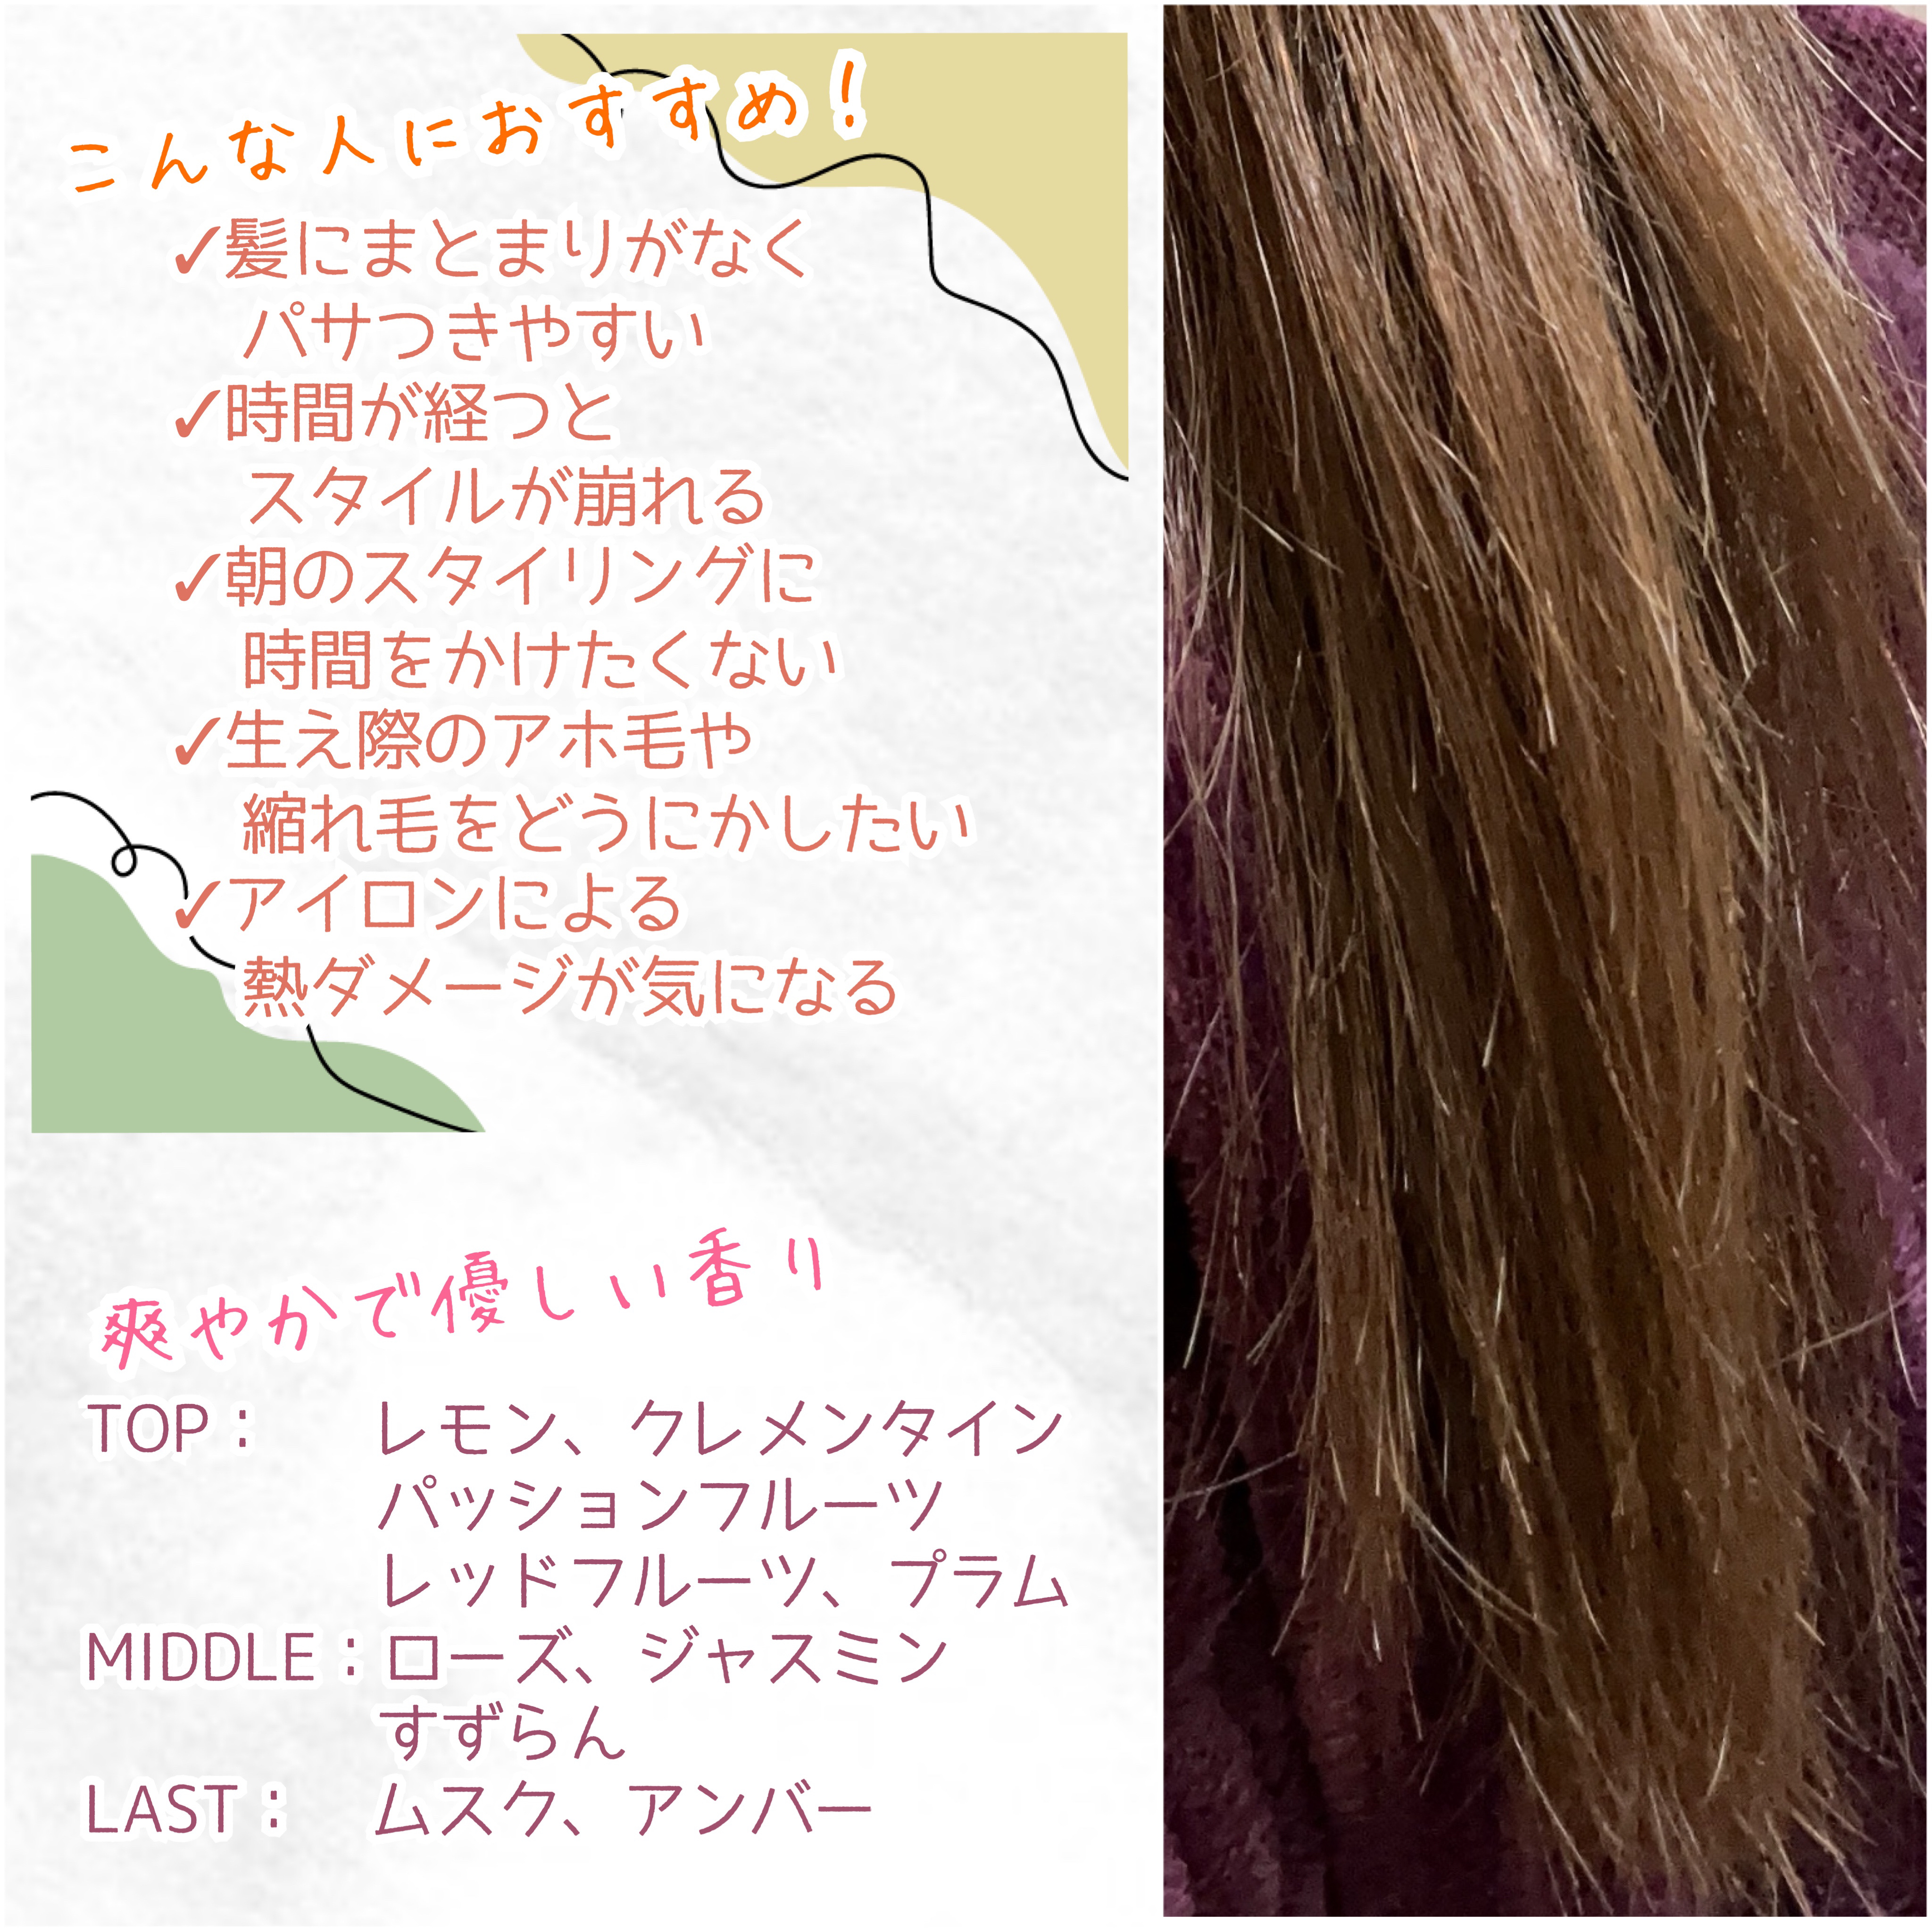 こんな人におすすめ!
✓髪にまとまりがなく
パサつきやすい
✓時間が経つと
スタイルが崩れる
✓朝のスタイリングに
時間をかけたくない
✓生え際のアホ毛や
縮れ毛をどうにかしたい
✓アイロンによる
熱ダメージが気になる
爽やかで優しい香り
TOP： レモン、クレメンタイン
パッションフルーツ
レッドフルーツ、プラム
MIDDLE：ローズ、ジャスミン
すずらん
LAST： ムスク、アンバー